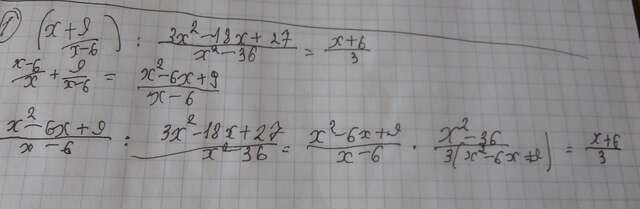 1) (x + 9/(x-6)) : (3x²-18x+27)/(x²-36) = (x+6)/3
(x-6)/x + 9/(x-6) = (x²-6x+9)/(x-6)
(x²-6x+9)/(x-6) : (3x²-18x+27)/(x²-36) = (x²-6x+9)/(x-6) · (x²-36)/(3(x²-6x+9)) = (x+6)/3